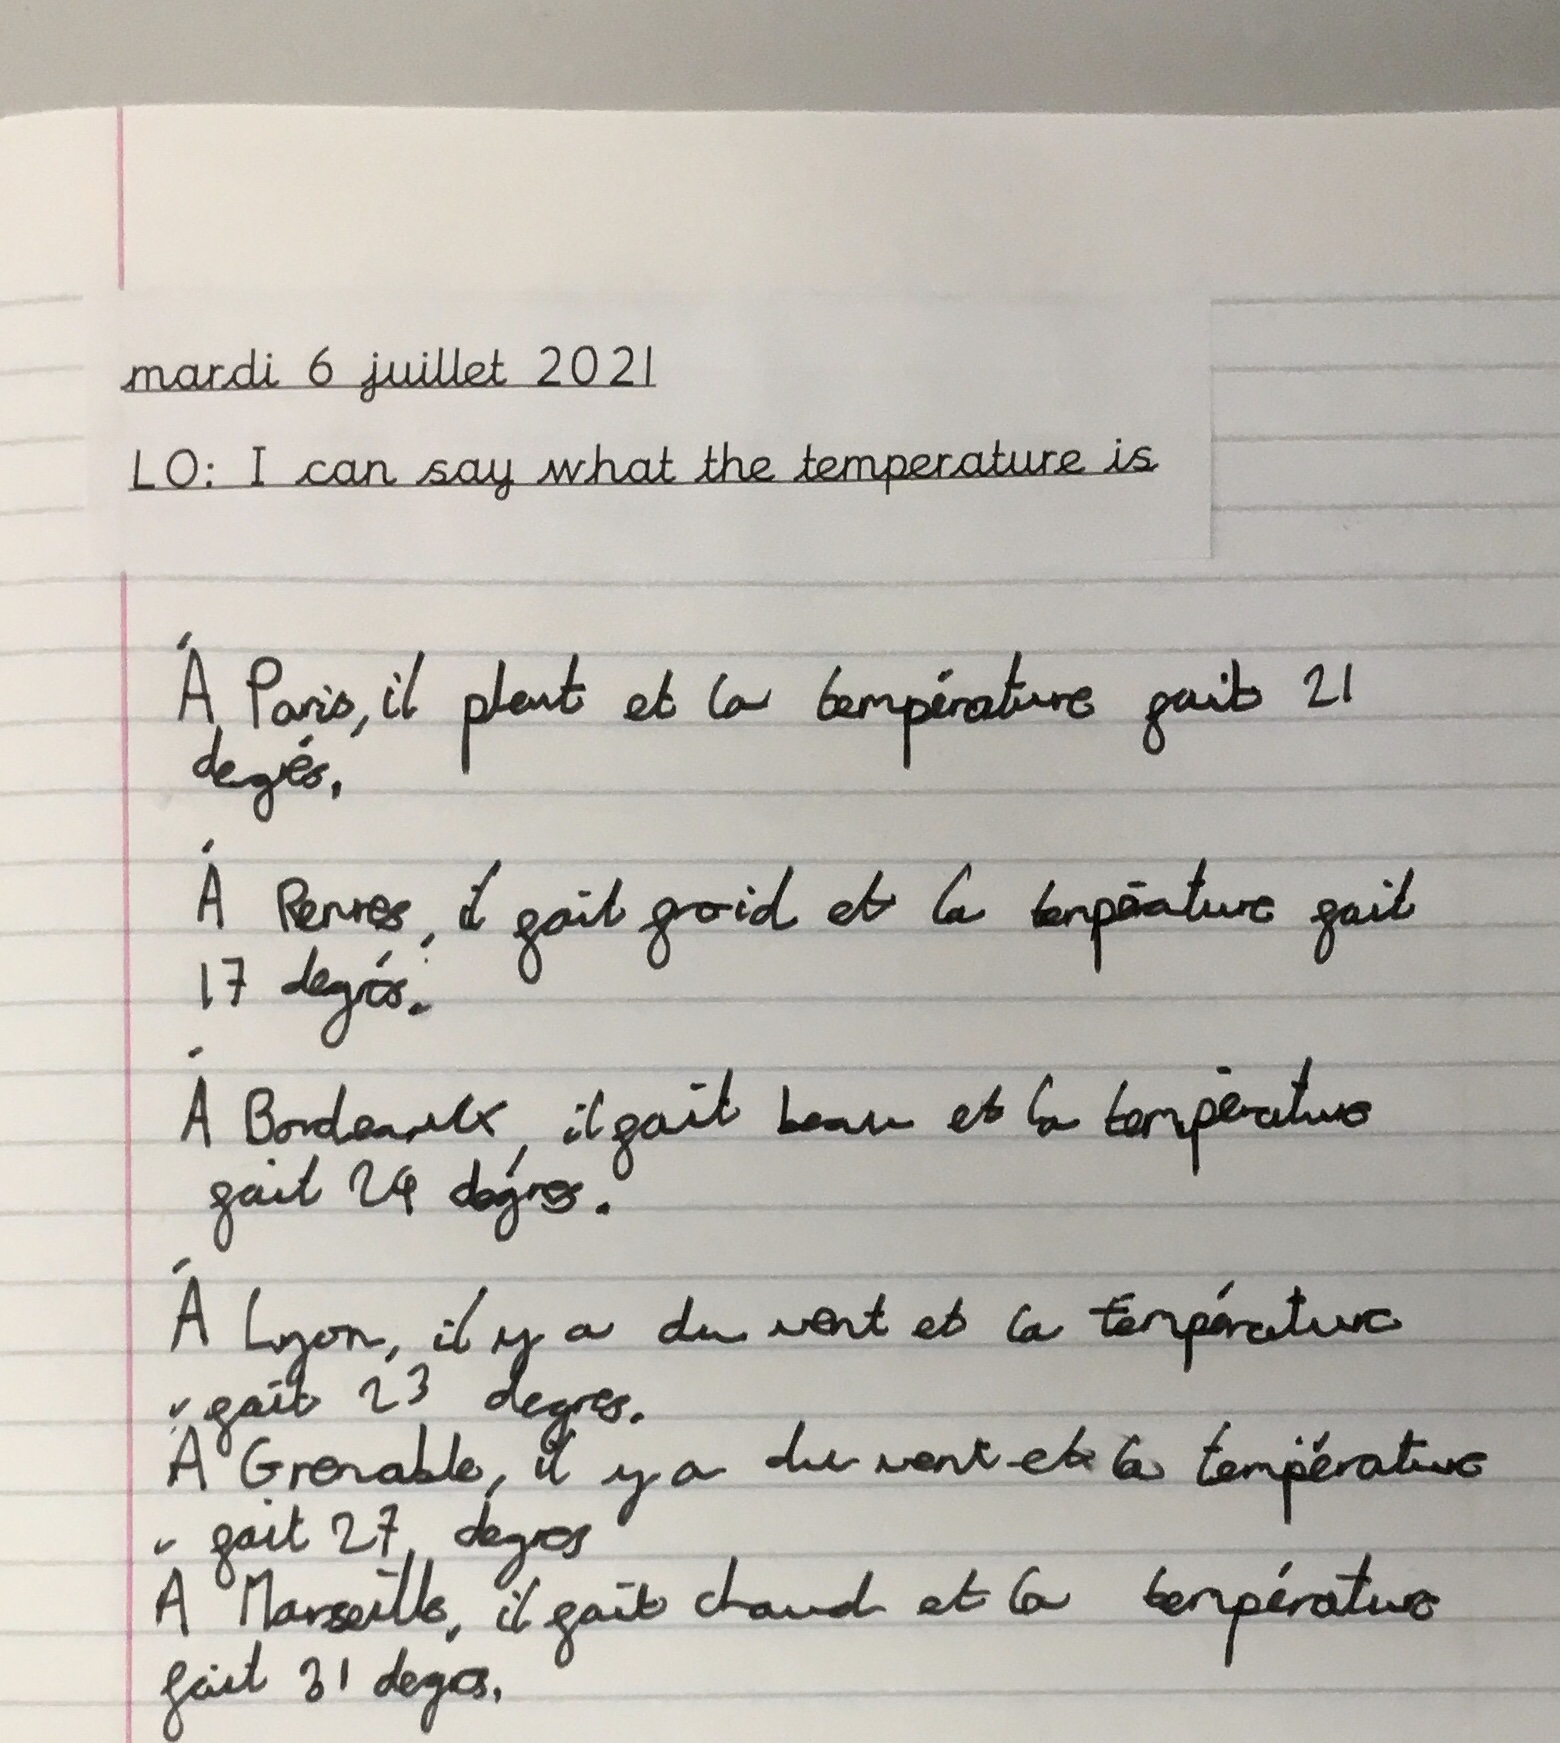 mardi 6 juillet 2021
LO: I can say what the temperature is
Á Paris, il pleut et la température fait 21
degrés.
Á Rennes, il fait froid et la température fait
17 degrés.
Á Bordeaux, il fait beau et la température
fait 24 dégres.
Á Lyon, il y a du vent et la température
fait 23 degres.
Á Grenable, il y a du vent et la température
fait 27 dégres
Á Marseille, il fait chaud et la température
fait 31 degres.